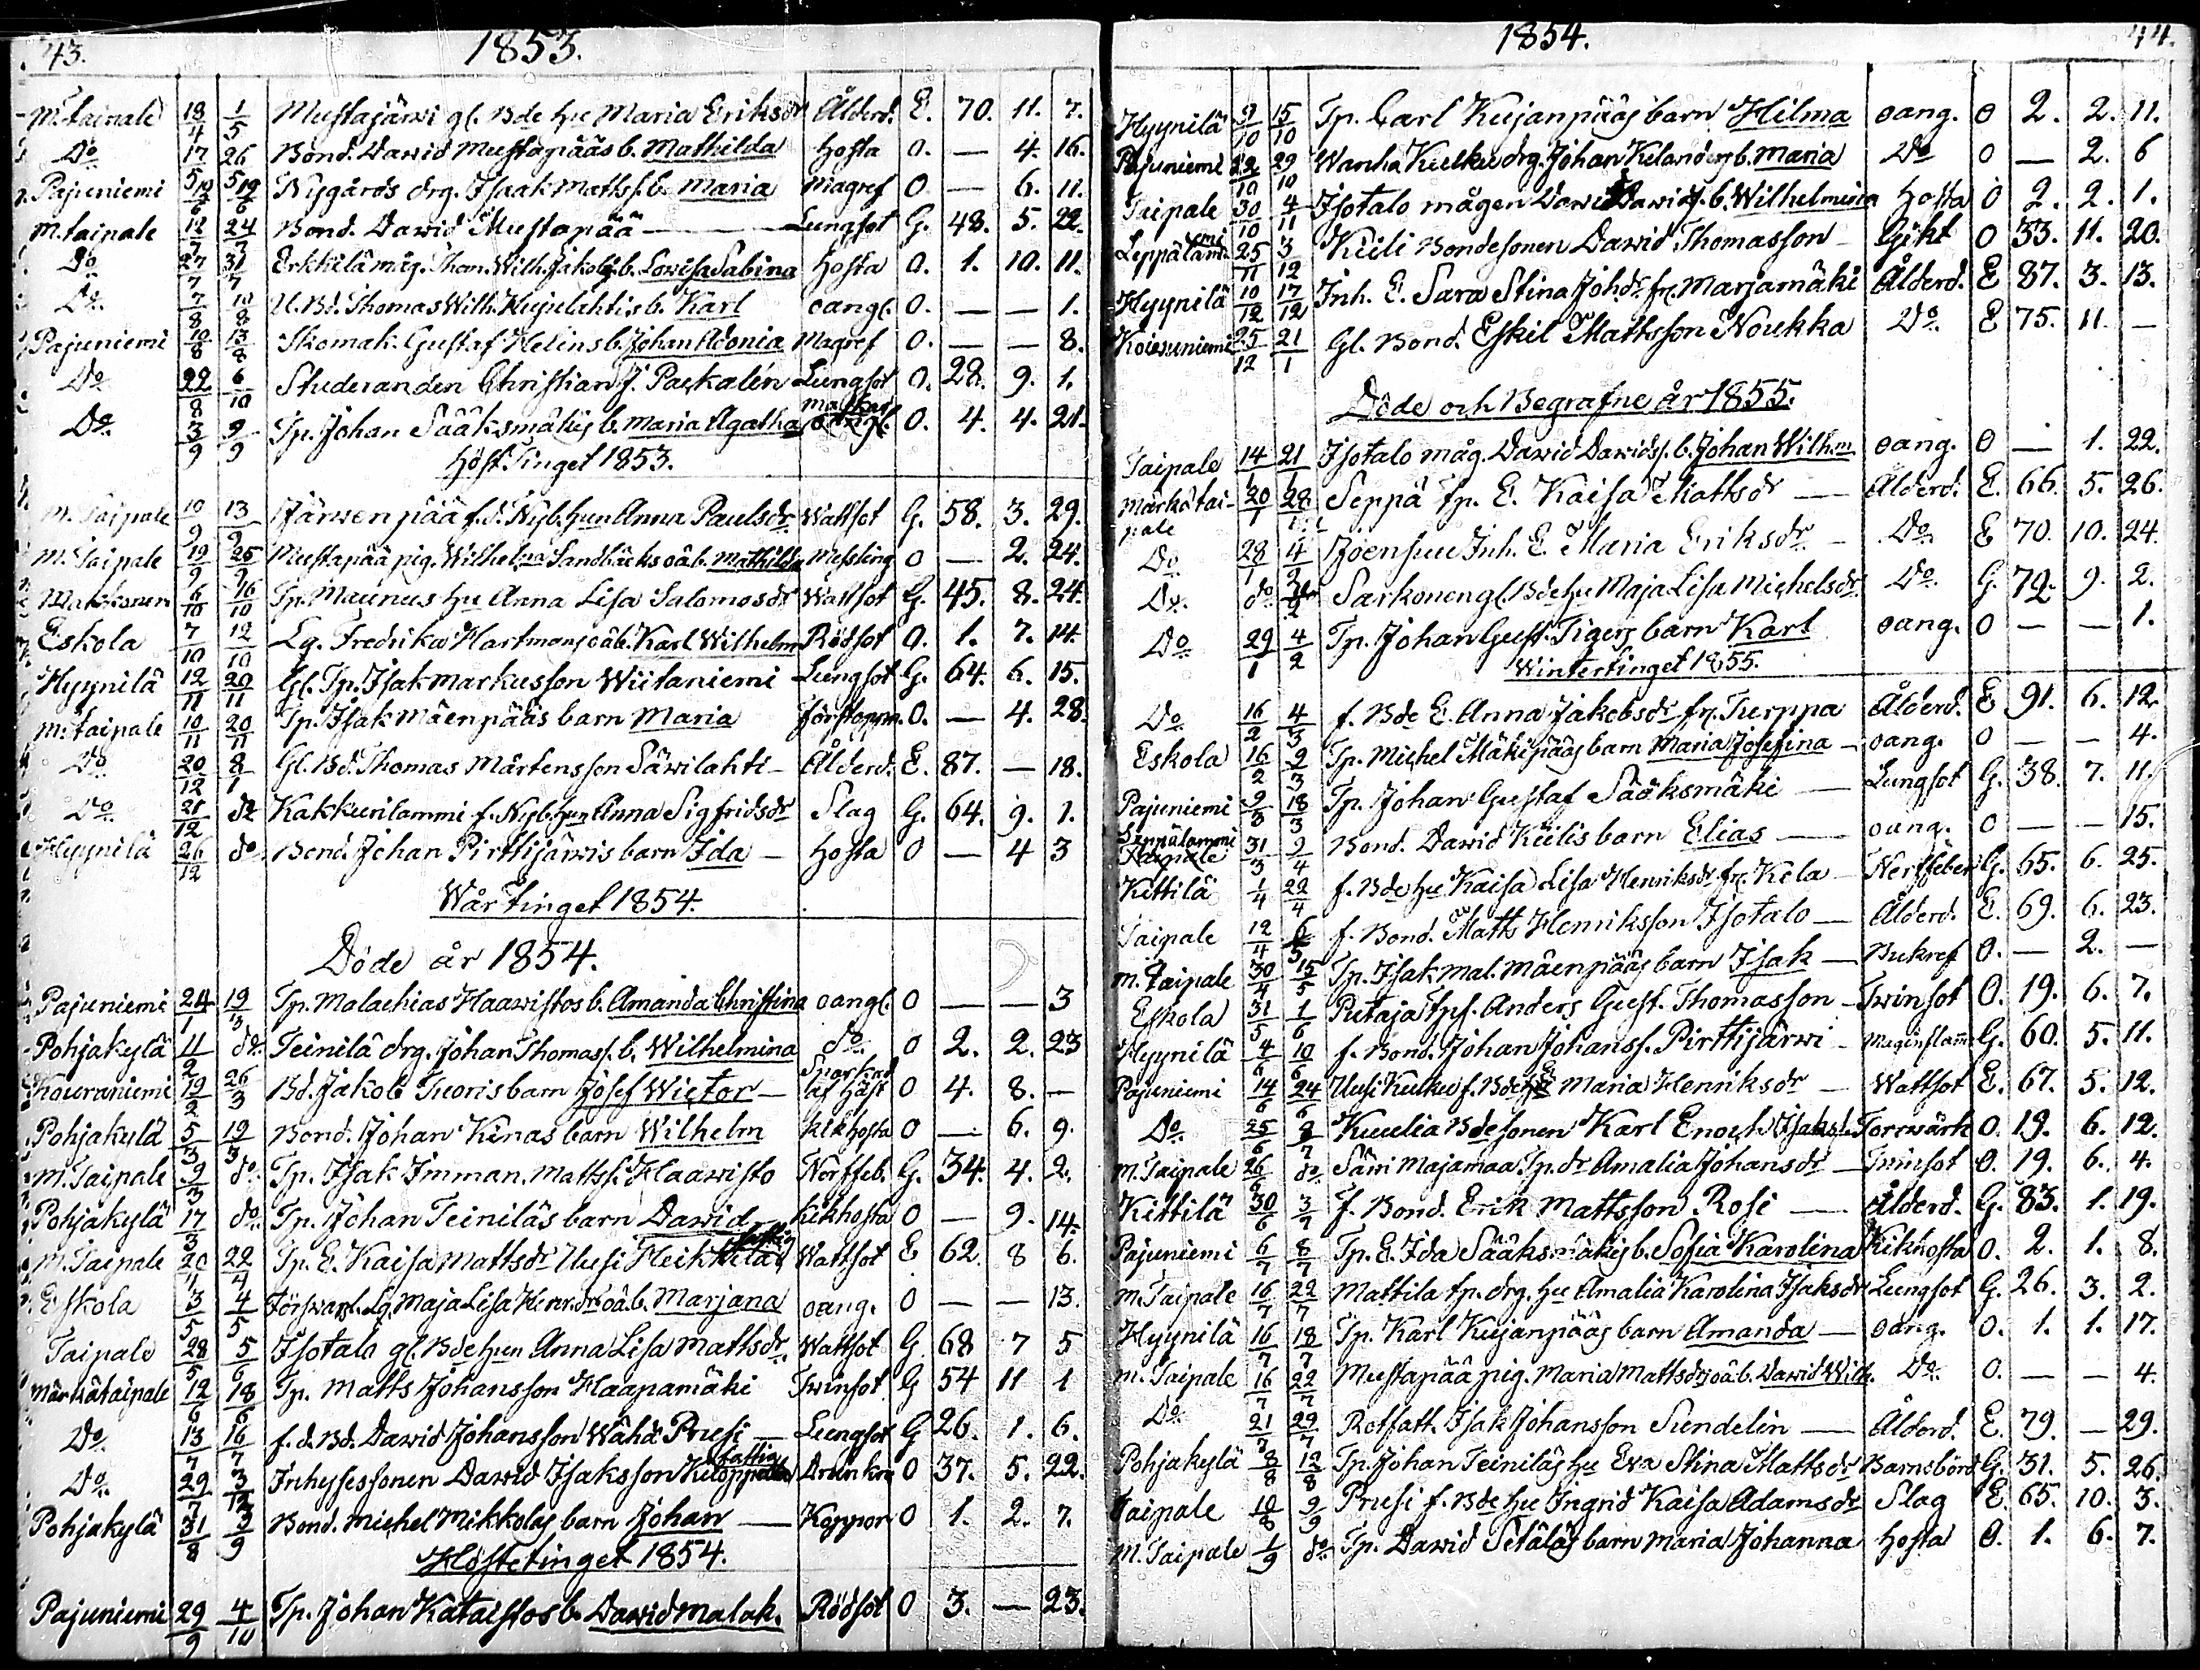 43. 1853.
M.taipale 18/4 1/5 Mustajärwi gl. Bde hu Maria Eriksdr Ålderd. E. 70. 11. 7.
Do 17/5 26/5 Bond. Dawid Mustapääs b. Mathilda Hosta O. — 4. 16.
Pajuniemi 19/6 19/6 Nygårds drg. Isaak Mattss. b. Maria Magref O — 6. 11.
M.taipale 12/7 24/7 Bond. Dawid Mustapää — Lungsot G. 48. 5. 22.
Do 27/7 31/7 Erkkilä måg. Thom. Wilh. Jakobs. b. Lowisa Sabina Hosta O. 1. 10. 11.
Do 7/8 10/8 U. Bd. Thomas Wilh. Hujulahtis b. Karl oangl. O. — — 1.
Pajuniemi 10/8 13/8 Skomak. Gustaf Helins b. Johan Adonia Magref O. — — 8.
Do 22/8 6/10 Studeranden Christian J. Paskalén Lungsot O. 28. 9. 1.
Do 3/9 9/9 Tp. Johan Sääksmäkis b. Maria Agatha Maskar O. 4. 4. 21.
Höst Tinget 1853.
M. Taipale 10/9 13/9 Järwenpää f. d. Nyb. hun Anna Paulsdr Wattsot G. 58. 3. 29.
M. Taipale 19/9 25/9 Mustapää pig. Wilhelma Sandbäcks oäb. Mathilda Messling O — 2. 24.
6/10 16/10 Tp. Maunus hu Anna Lisa Salomosdr Wattsot G. 45. 8. 24.
Eskola 7/10 12/10 Lg. Fredrika Hartmans oäb. Karl Wilhelm Rödsot O. 1. 7. 14.
Hyynilä 12/11 20/11 Gl. Tp. Isak Markusson Wiitaniemi Lungsot G. 64. 6. 15.
M. taipale 10/11 20/11 Tp. Isak Mäenpääs barn Maria Förstoppn. O. — 4. 28.
Do 20/12 8/1 Gl. Bd. Thomas Mårtensson Säwilahti — Ålderd. E. 87. — 18.
Do 21/12 do Kakkurilammi f. Nyb. hun Anna Sigfridsdr Slag G. 64. 9. 1.
Hyynilä 26/12 do Bond. Johan Pirttijärwis barn Ida — Hosta O — 4 3
Wår Tinget 1854.
Döde år 1854.
Pajuniemi 24/1 19/3 Tp. Malachias Haawistos b. Amanda Christina oangl. O — — 3
Pohjakylä 11/2 do Teinilä drg. Johan Thomass. b. Wilhelmina do O 2. 2. 23
Kouraniemi 19/2 26/3 Bd. Jakob Tuoris barn Josef Wictor — Sparkad af Häst O 4. 8. —
Pohjakylä 5/3 19/3 Bond. Johan Kinas barn Wilhelm Kikhosta O — 6. 9.
M. Taipale 9/3 do Tp. Isak Imman. Mattss. Haawisto Nerffeb. G. 34. 4. 2.
Pohjakylä 17/3 do Tp. Johan Teiniläs barn Dawid Kikhosta O — 9. 14.
M. Taipale 20/4 22/4 Tp. E. Kaisa Mattsdr Uusi Heikkilä fattig Wattsot E 62. 8 6.
Eskola 3/5 4/5 Förswarsl. Lg. Maja Lisa oäb. Marjana oang. O — — 13.
Taipale 28/5 5/6 Isotalo gl. Bde hun Anna Lisa Mattsdr Wattsot G 68 7 5
Märkätaipale 12/6 18/6 Tp. Matts Johansson Haapamäki Twinsot G 54 11 1
Do 13/7 16/7 f. d. Bd. Dawid Johansson Wähä Prusi — Lungsot G 26. 1. 6.
Do 29/7 3/12 Inhysessonen Dawid Isaksson fattig Drunkn O 37. 5. 22.
Pohjakylä 31/8 3/9 Bond. Michel Mikkolas barn Johan — Koppor O 1. 2. 7.
Höstetinget 1854.
Pajuniemi 29/9 4/10 Tp. Johan Kataistos b. Dawid Malak. Rödsot O 3. — 23.
1854. 44.
Hyynilä 9/10 15/10 Tp. Carl Kujanpääs barn Hilma oang. O 2. 2. 11.
Pajuniemi 22/10 29/10 Wanha Kuuku drg. Johan Kelanders b. Maria Do O — 2. 6
Taipale 30/10 4/11 Isotalo mågen Dawid Dawids. b. Wilhelmina Hosta O 2. 2. 1.
Leppälammi 25/11 3/12 Kiili Bondesonen Dawid Thomasson Gikt O 33. 11. 20.
Hyynilä 10/12 17/12 Inh. E. Sara Stina Johdr fr. Marjamäki Ålderd. E 87. 3. 13.
Koiwuniemi 25/12 21/1 Gl. Bond. Eskil Mattsson Noukka Do. E 75. 11. —
Döde och Begrafne år 1855.
Taipale 14/1 21/1 Isotalo måg. Dawid Dawidss. b. Johan Wilhm. oang. O — 1. 22.
Märkätaipale 20/1 28/1 Seppä tp. E. Kaisa Mattsdr — Ålderd. E. 66. 5. 26.
Do 28/1 4/2 Joensuu Inh. E. Maria Eriksdr — Do E 70. 10. 24.
Do. do do Sarkonen gl. Bde hu Maja Lisa Michelsdr Do. G. 79. 9. 2.
Do 29/1 4/2 Tp. Johan Gust. Tigers barn Karl oang. O — — 1.
Wintertinget 1855.
Do 16/2 4/3 f. Bde E. Anna Jakobsdr fr. Turppa Ålderd. E 91. 6. 12.
Eskola 16/2 9/3 Tp. Michel Mäkipääs barn Maria Josefina — oang. O — — 4.
Pajuniemi 9/3 18/3 Tp. Johan Gustaf Sääksmäki — Lungsot G. 38. 7. 11.
Leppälammi 31/3 9/4 Bond. Dawid Kiilis barn Elias — oang. O — — 15.
Kittilä 1/4 22/4 f. Bde hu Kaisa Lisa Henriksdr fr. Kela — Nerffeber G. 65. 6. 25.
Taipale 12/4 6/5 f. Bond. Matts Henriksson Isotalo — Ålderd. E. 69. 6. 23.
M. Taipale 30/4 15/5 Tp. Isak Mal. Mäenpääs barn Isak — Bukref O. — 2. —
Eskola 31/5 1/6 Putaja tps. Anders Gust. Thomasson — Twinsot O. 19. 6. 7.
Hyynilä 4/6 10/6 f. Bond. Johan Johanss. Pirttijärwi — Maginflam G. 60. 5. 11.
Pajuniemi 14/6 24/6 Uusi Kuuku f. Bde hu Maria Henriksdr — Wattsot E. 67. 5. 12.
Do 25/6 8/7 Kuulia Bdesonen Karl Enoch Isakss. Torrwärk O. 19. 6. 12.
M. Taipale 26/6 do Säwi Majamaa Tp. dr Amalia Johansdr — Twinsot O. 19. 6. 4.
Kittilä 30/6 3/7 f. Bond. Erik Mattsson Rosi — Ålderd. G. 83. 1. 19.
Pajuniemi 6/7 8/7 Tp. E. Ida Sääksmäkis b. Sofia Karolina Kikhosta O. 2. 1. 8.
M. Taipale 16/7 22/7 Mattila tp. drg. hu Amalia Karolina Isaksdr Lungsot G. 26. 3. 2.
Hyynilä 16/7 18/7 Tp. Karl Kujanpääs barn Amanda — oang. O. 1. 1. 17.
M. Taipale 16/7 22/7 Mustapää pig. Maria Mattsdrs oäb. Dawid Wilh. Do. O. — — 4.
Do 21/7 29/7 Rotfatt. Isak Johansson Sundelin — Ålderd. E. 79. — 29.
Pohjakylä 8/8 12/8 Tp. Johan Teiniläs hu Eva Stina Mattsdr Barnsbörd G. 31. 5. 26.
Taipale 10/8 9/9 Prusi f. Bde hu Ingrid Kaisa Adamsdr Slag E. 65. 10. 3.
M. Taipale 1/9 do Tp. Dawid Setäläs barn Maria Johanna Hosta O. 1. 6. 7.